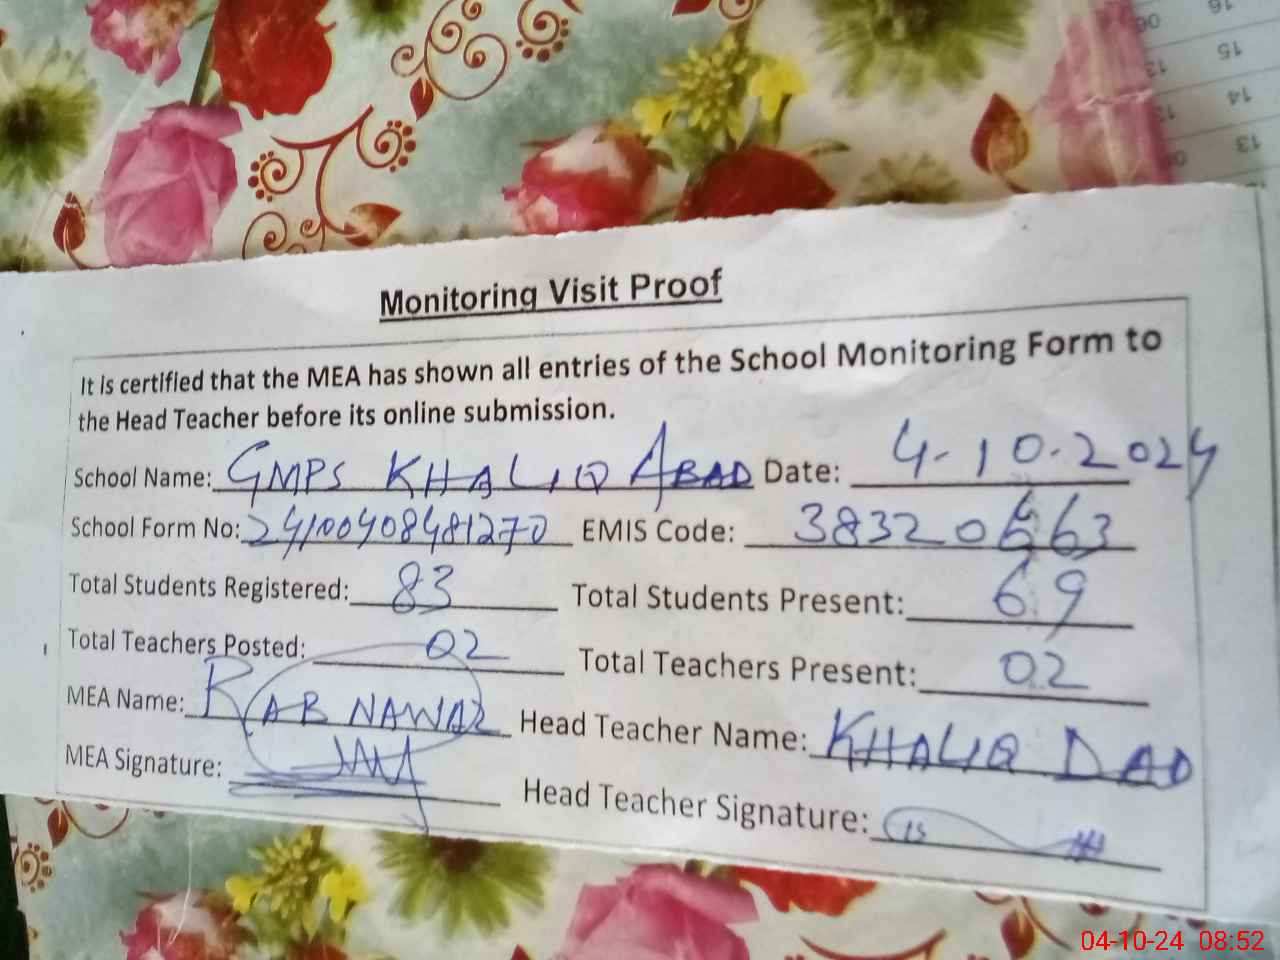 Monitoring Visit Proof
It is certified that the MEA has shown all entries of the School Monitoring Form to
the Head Teacher before its online submission.
School Name: GMPS KHALIQ ABAD Date: 4-10-2024
School Form No: 24100408481270 EMIS Code:
Total Students Registered: 83 Total Students Present: 69
Total Teachers Posted: 02 Total Teachers Present: 02
MEA Name: RAB NAWAZ Head Teacher Name: KHALIQ DAD
MEA Signature:
Head Teacher Signature:
04-10-24 08:52